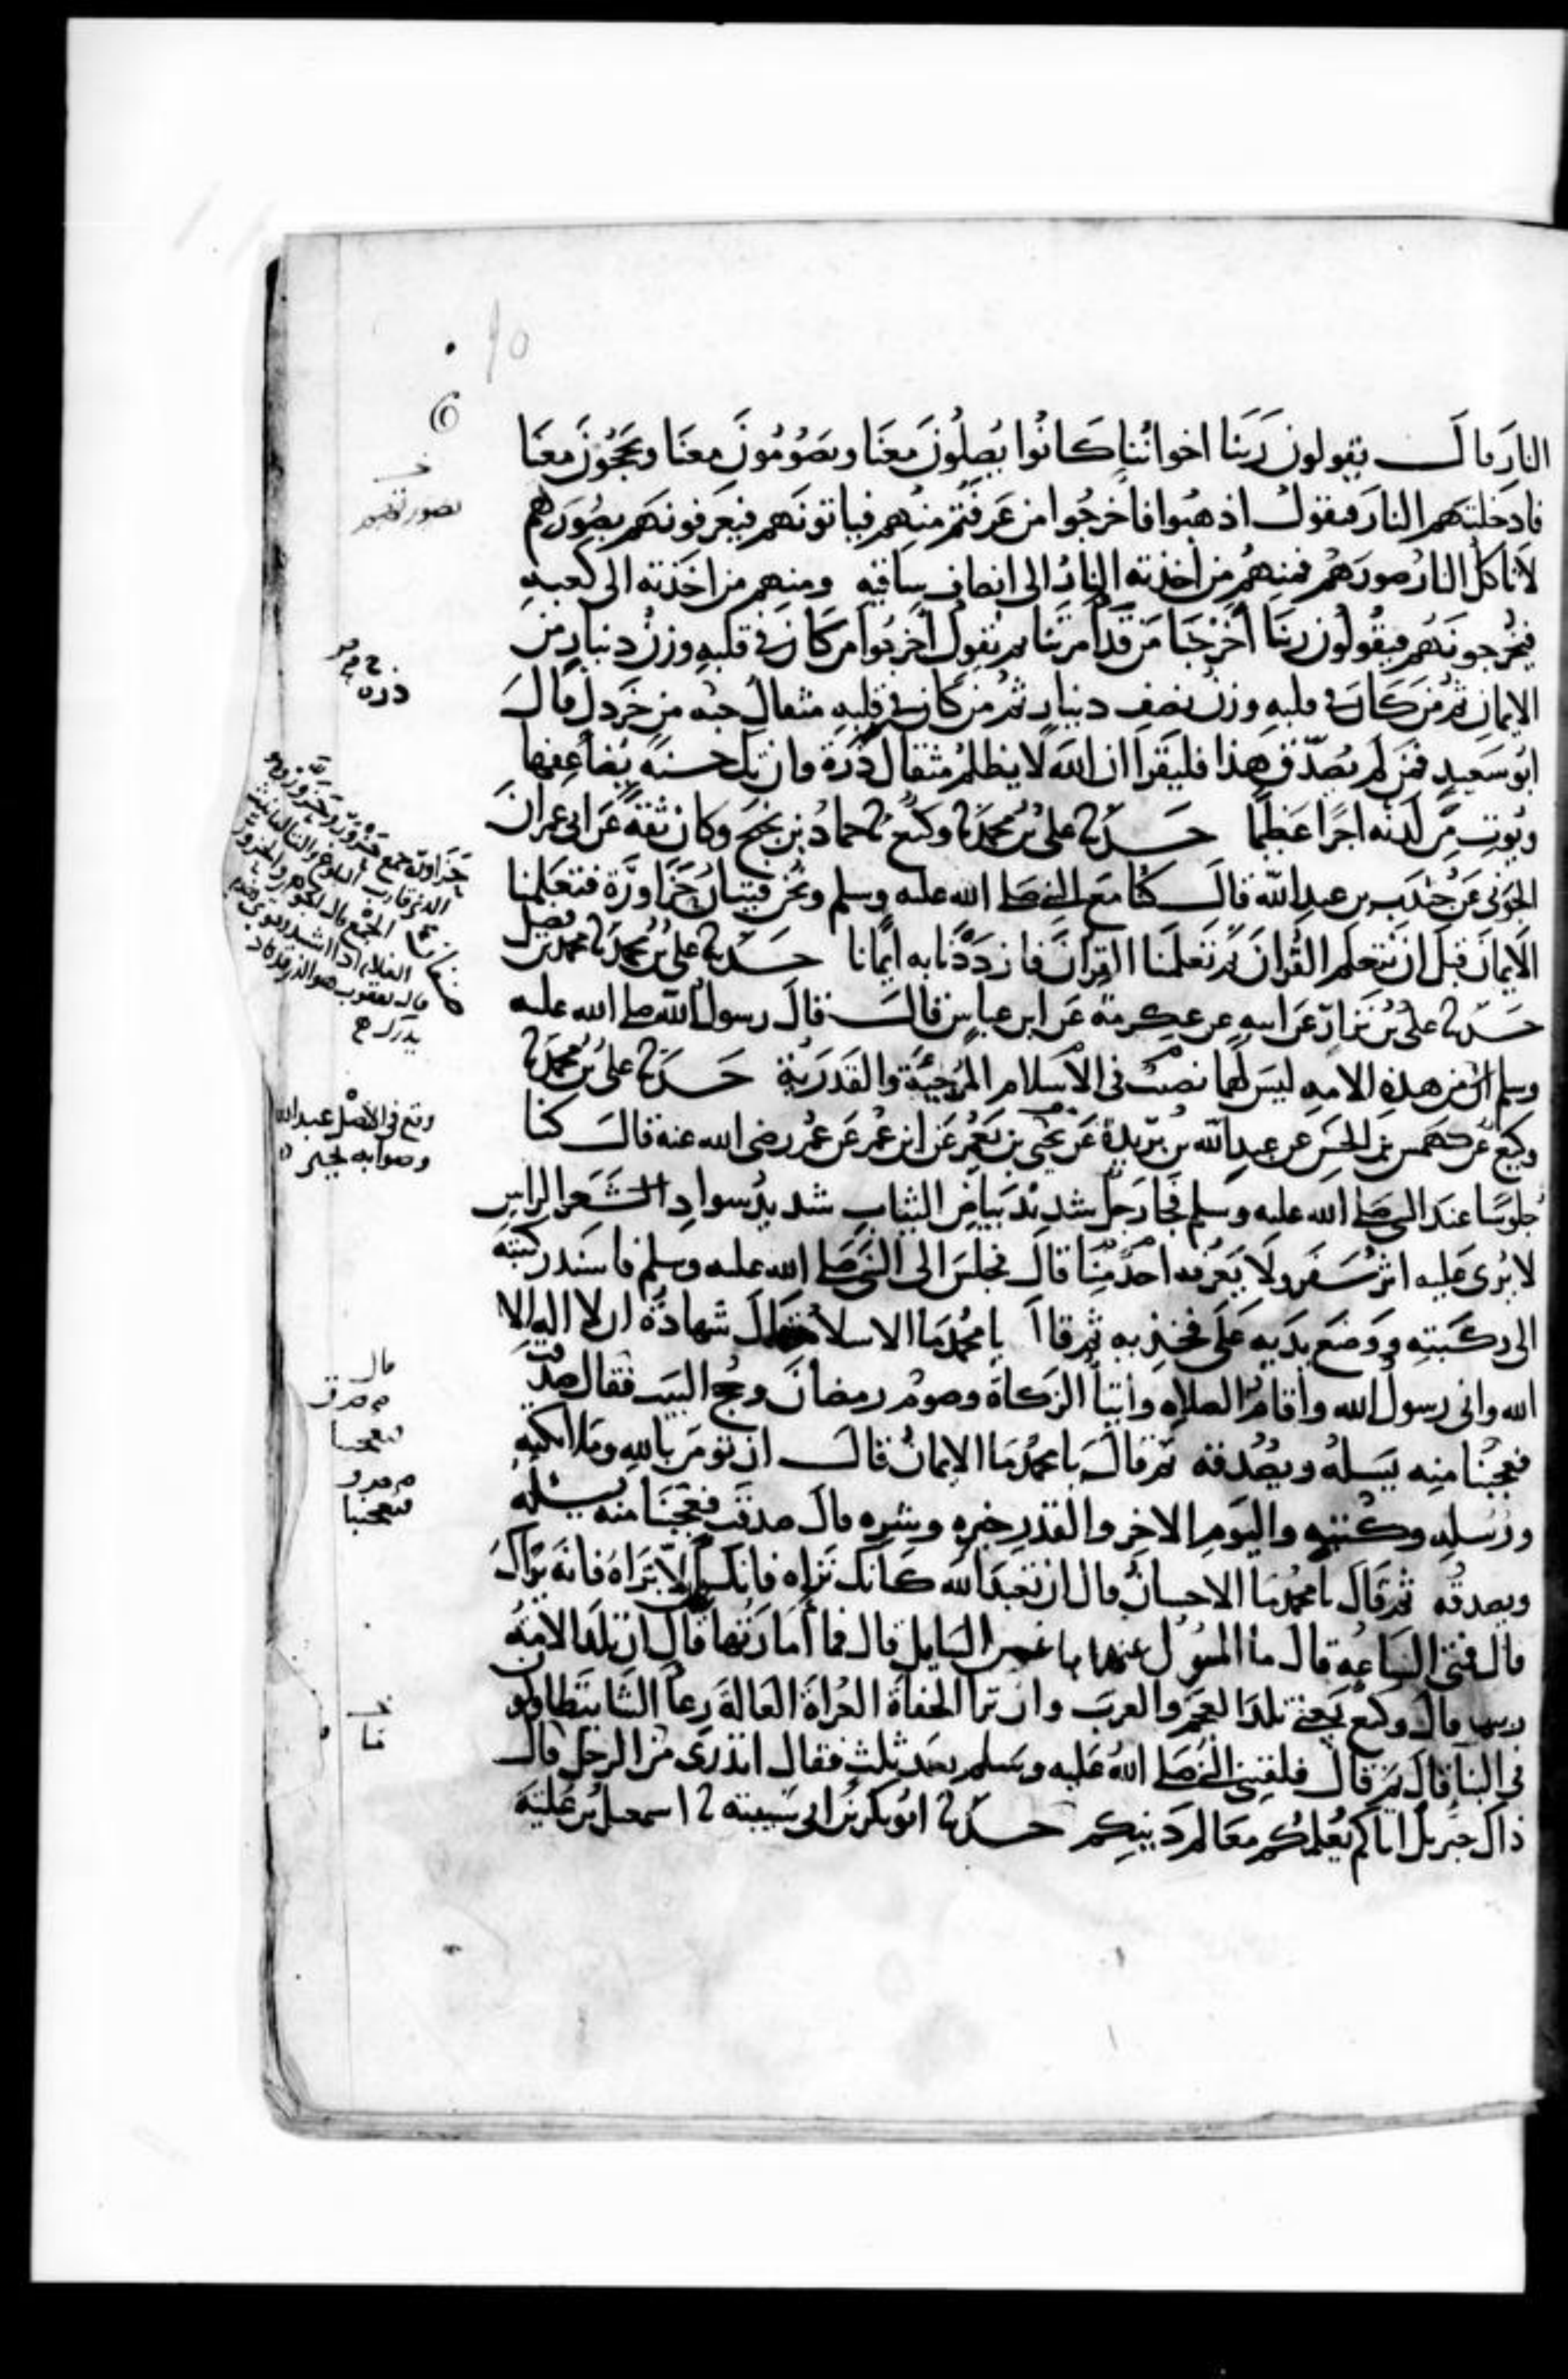 النار قال يقولون ربنا اخواننا كانوا يصلون معنا ويصومون معنا ويحجون معنا
فادخلتهم النار فيقول اذهبوا فاخرجوا من عرفتم منهم فياتونهم فيعرفونهم بصورهم
لا تاكل النار صورهم فمنهم من اخذته النار الى انصاف ساقيه ومنهم من اخذته الى كعبيه
فيخرجونهم فيقولون ربنا اخرجنا من قد امرتنا ثم يقول اخرجوا من كان في قلبه وزن دينار من
الايمان ثم من كان في قلبه وزن نصف دينار ثم من كان في قلبه مثقال حبه من خردل قال
ابو سعيد فمن لم يصدق هذا فليقرا ان الله لا يظلم مثقال ذرة وان تك حسنة يضاعفها
ويوت من لدنه اجرا عظيما حدثنا علي بن محمد ثنا وكيع ثنا حماد بن نجيح وكان ثقة عن ابي عمران
الجوني عن جندب بن عبد الله قال كنا مع النبي صلى الله عليه وسلم ونحن فتيان حزاورة فتعلمنا
الايمان قبل ان نتعلم القران ثم تعلمنا القران فازددنا به ايمانا حدثنا علي بن محمد ثنا محمد بن فضيل
حدثنا علي بن نزار عن ابيه عن عكرمة عن ابن عباس قال قال رسول الله صلى الله عليه
وسلم صنفان من هذه الامه ليس لهما نصيب في الاسلام المرجئة والقدرية حدثنا علي بن محمد ثنا
وكيع عن كهمس بن الحسن عن عبد الله بن بريدة عن يحيى بن يعمر عن ابن عمر عن عمر رضى الله عنه قال كنا
جلوسا عند النبي صلى الله عليه وسلم فجا رجل شديد بياض الثياب شديد سواد الشعر الراس
لا يرى عليه اثر سفر ولا يعرفه احد منا قال فجلس الى النبي صلى الله عليه وسلم فاسند ركبته
الى ركبته ووضع يديه على فخذيه ثم قال يا محمد ما الاسلام قال شهادة ان لا اله الا
الله واني رسول الله واقام الصلاه وايتا الزكاة وصوم رمضان وحج البيت فقال صدقت
فعجبنا منه يسله ويصدقه ثم قال يا محمد ما الايمان قال ان تومن بالله وملائكته
ورسله وكتبه واليوم الاخر والقدر خيره وشره قال صدقت فعجبنا منه يسئله
ويصدقه ثم قال يا محمد ما الاحسان قال ان تعبد الله كانك تراه فانك ان لا تراه فانه يراك
قال فمتى الساعه قال ما المسول عنها باعلم من السايل قال فما امارتها قال ان تلد الامة
ربتها قال وكيع يعني تلد العجم والعرب وان ترا الحفاة العراة العالة رعا الشا يتطاولون
في البنا قال ثم قال فلقيني النبي صلى الله عليه وسلم بعد ثلث فقال اتدرى من الرجل قال
ذاك جبريل اتاكم يعلمكم معالم دينكم حدثنا ابو بكر بن ابي شيبة ثنا اسمعيل بن علية
ذرة
وقع في الاصل عبد الله
وصوابه يحيى
فعجبنا
فتعجبنا